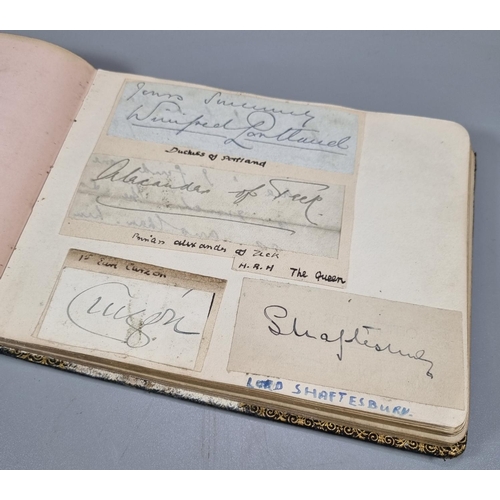 Yours Sincerely
Winifred Portland
Duchess of Portland
Alexander of Teck.
Prince Alexander of Teck
H.R.H The Queen
1st Earl Curzon
Curzon
Shaftesbury
LORD SHAFTESBURY.